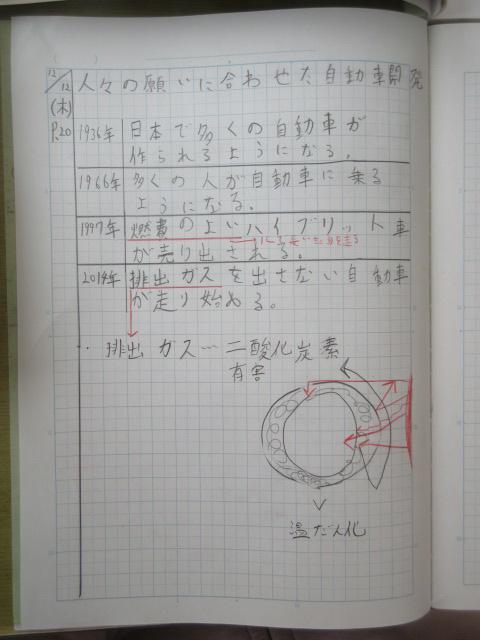 12/12
(木)
P.20
人々の願いに合わせた自動車開発
1936年 日本で多くの自動車が
作られるようになる。
1966年 多くの人が自動車に乗る
ようになる。
1997年 燃費のよいハイブリット車
が売り出される。
2014年 排出ガスを出さない自動車
が走り始める。
・排出ガス…二酸化炭素
有害
温だん化